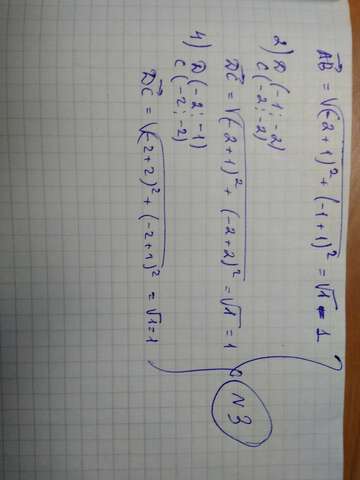 AB = √(-2+1)² + (-1+1)² = √1 = 1
2) D (-1; -2)
C (-2; -2)
DC = √(-2+1)² + (-2+2)² = √1 = 1
4) D (-2; -1)
C (-2; -2)
DC = √(-2+2)² + (-2+1)² = √1 = 1
N3